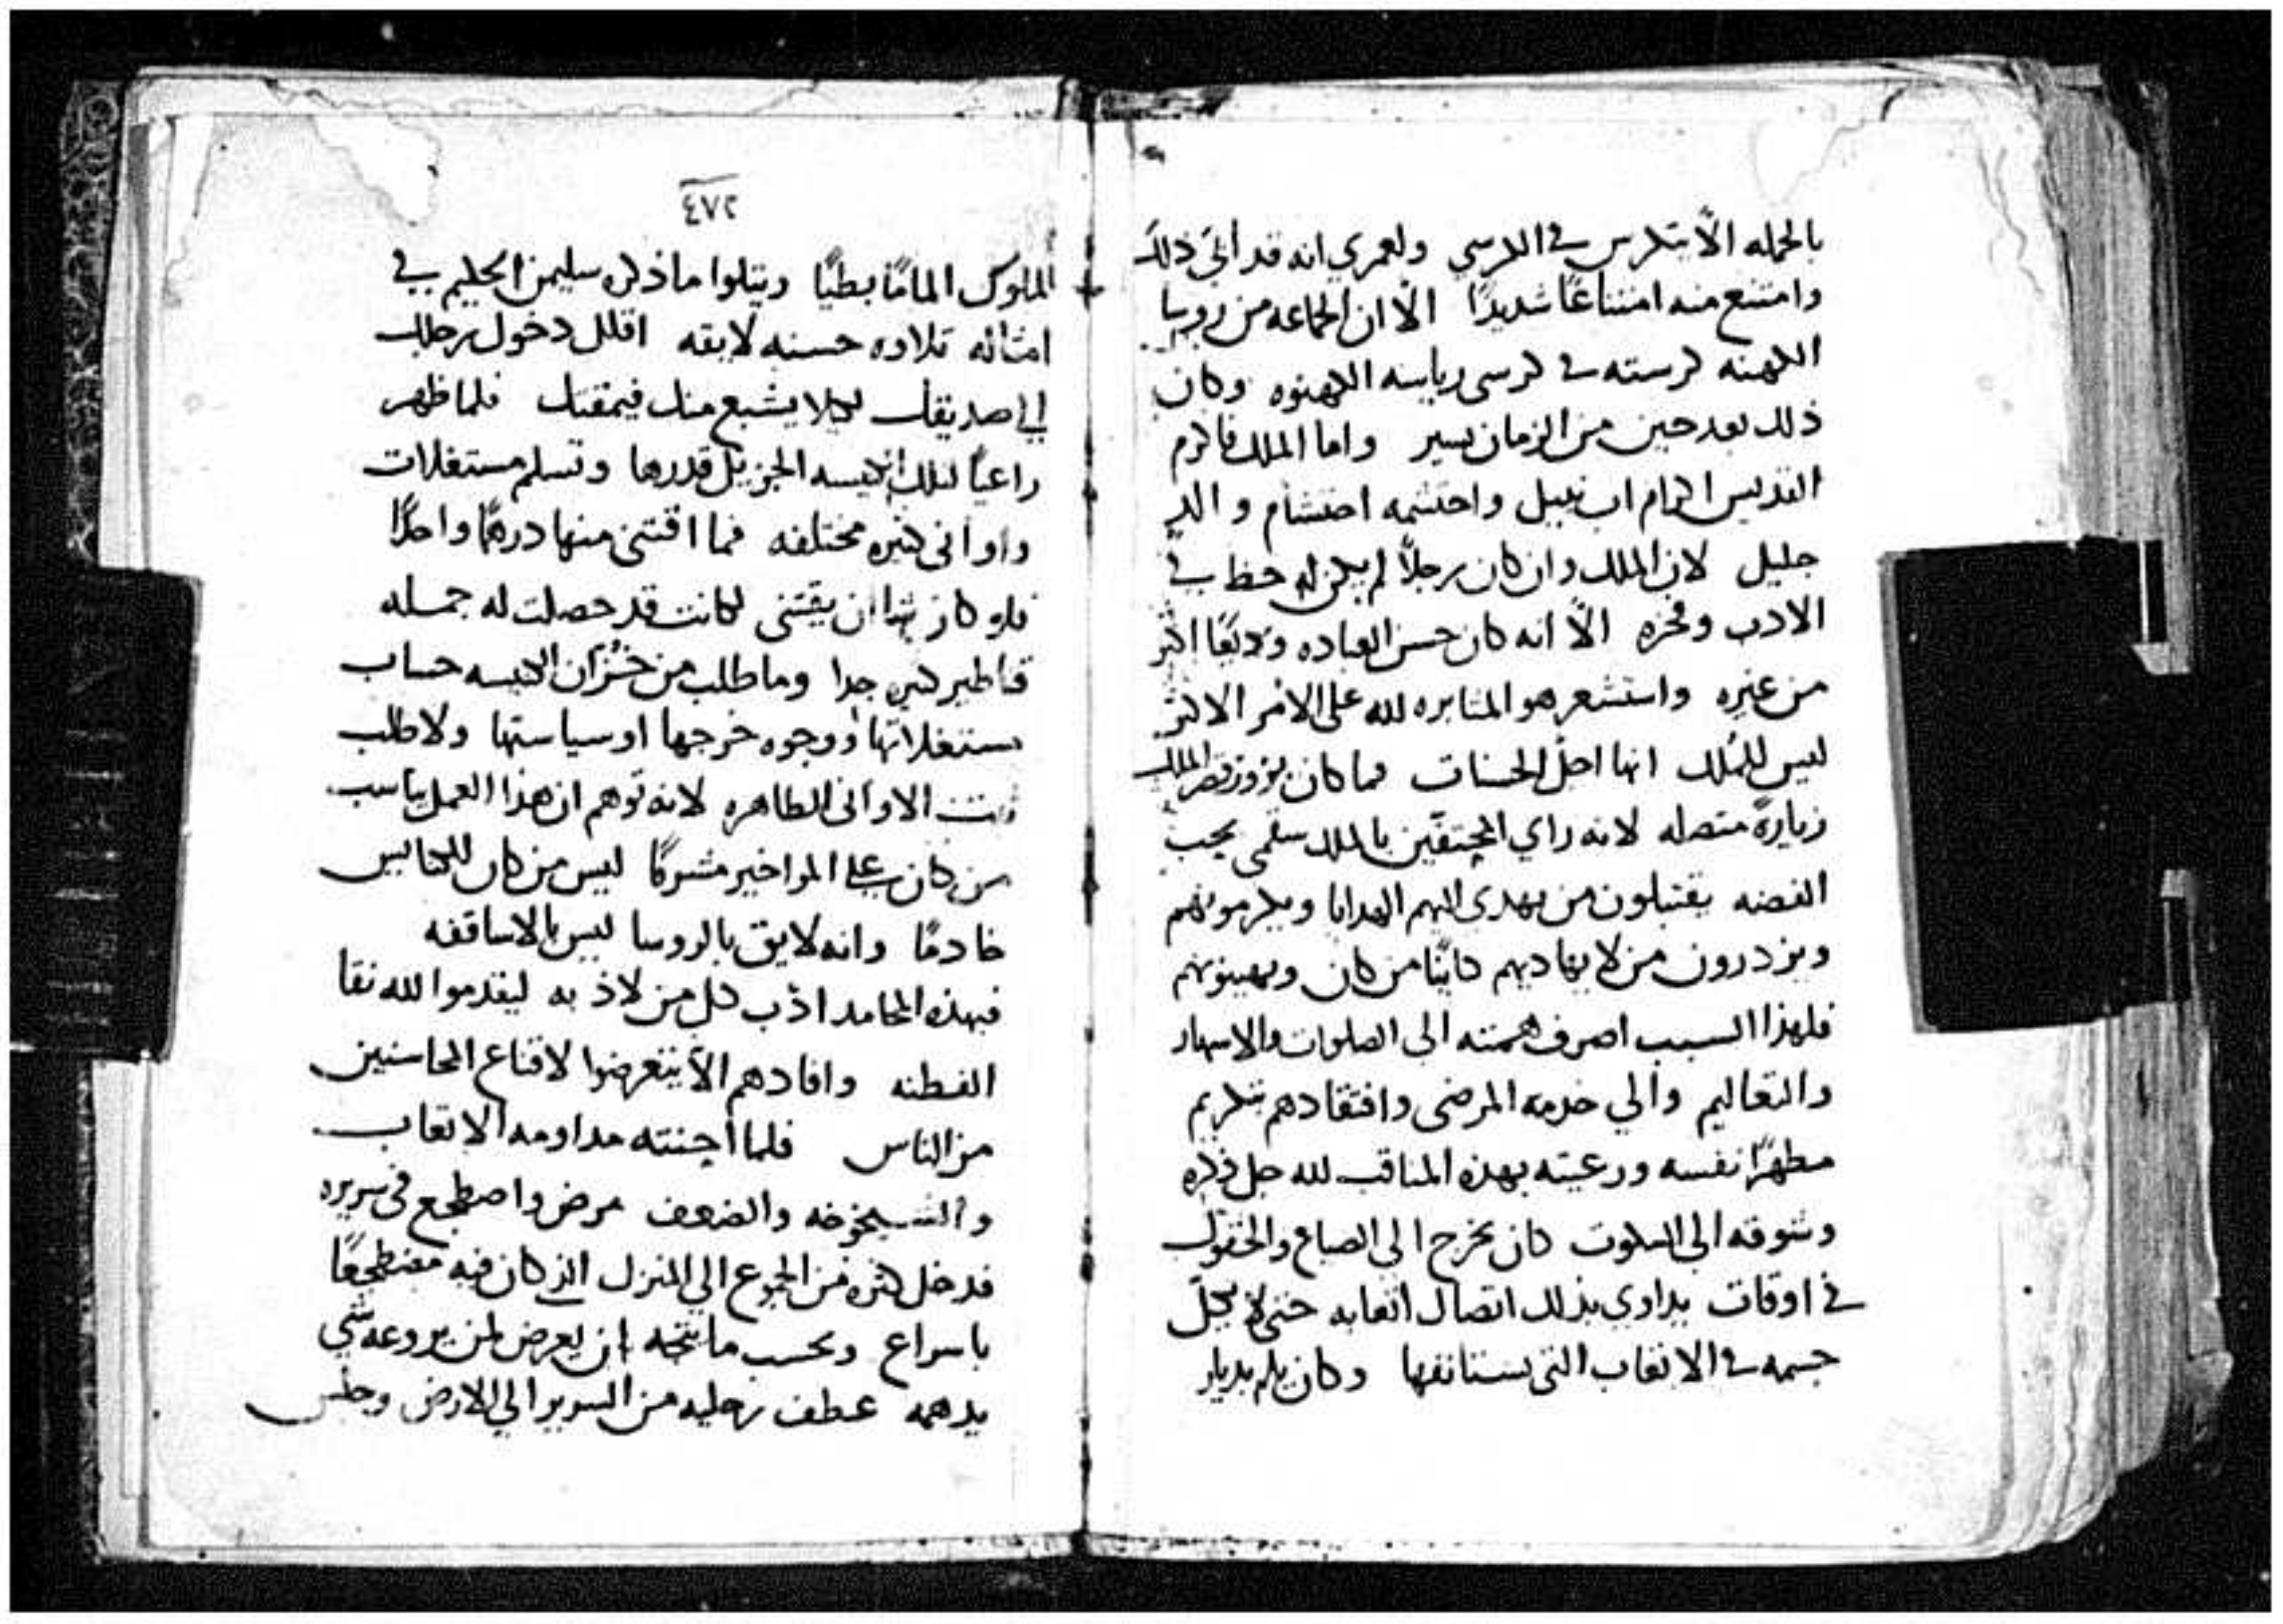 بالجمله الّا يتكرس في الكرسي ولعمري انه قد ابَى ذلك
وامتنع منه امتناعًا شديدًا الّا ان الجماعه من روسا
الكهنه كرسته في كرسي رياسه الكهنوه وكان
ذلك بعد حين من الزمان يسير واما الملك فاكرم
القديس اكرام اب نبيل واحتشمه احتشام والد
جليل لان الملك وان كان رجلًا لم يكن له حظ في
الادب وفخره الّا انه كان حسن العباده وديعًا اكثر
من غيره واستشعر هو المثابره لله على الامر الاكثر
ليس للملك انها اجلّ الحسنات فما كان يزور قصر الملك
زيارةً متصله لانه راي المحتفين بالملك بحب
الفضه يقتبلون من يهدي اليهم الهدايا ويكرمونهم
ويزدرون من لا يهاديهم كاينًا من كان ويهينونهم
فلهذا السبب اصرف همته الى الصلوات والاسهار
والتعاليم والي خدمه المرضى وافتقادهم بتكريم
مطهرًا نفسه ورعيته بهذه المناقب لله جل ذكره
وشوقه الى السكوت كان يخرج الى الضياع والحقول
في اوقات يداوي بذلك اتصال اتعابه حتى لا يكلّ
جسمه في الاتعاب التي يستانفها وكان يلم بديار
٤٧٢
الملوك المامًا بطيًا ويتلوا ما ذكره سليمن الحكيم في
امثاله تلاوه حسنه لايقه اقلل دخول رجلك
الي صديقك ليلا يشبع منك فيمقتك فلما ظهر
راعيًا لتلك الكنيسه الجزيل قدرها وتسلم مستغلات
واواني كثيره مختلفه فما اقتنى منها درهمًا واحدًا
فلو كان يشا ان يقتني لكانت قد حصلت له جمله
قناطير كثيره جدا وما طلب من خُزّان الكنيسه حساب
مستغلاتها ووجوه خرجها او سياستها ولا طلب
الاواني الطاهره لانه توهم ان هذا العمل يناسب
من كان على المواخير مشرفًا ليس من كان للكنايس
خادمًا وانه لايق بالروسا ليس بالاساقفه
فبهذه المحامد ادّب كل من لاذ به ليقدموا لله نقا
الفطنه وافادهم الّا يتعرضوا لاقناع المحاسنين
من الناس فلما اجنته مداومه الاتعاب
والشيخوخه والضعف مرض واضطجع في سريره
فدخل كثره من الجموع الي المنزل الذي كان فيه مضطجعًا
باسراع وبحسب ما يتجه ان يعرض لمن يروعه شي
يدهمه عطف رجليه من السرير الي الارض وجلس